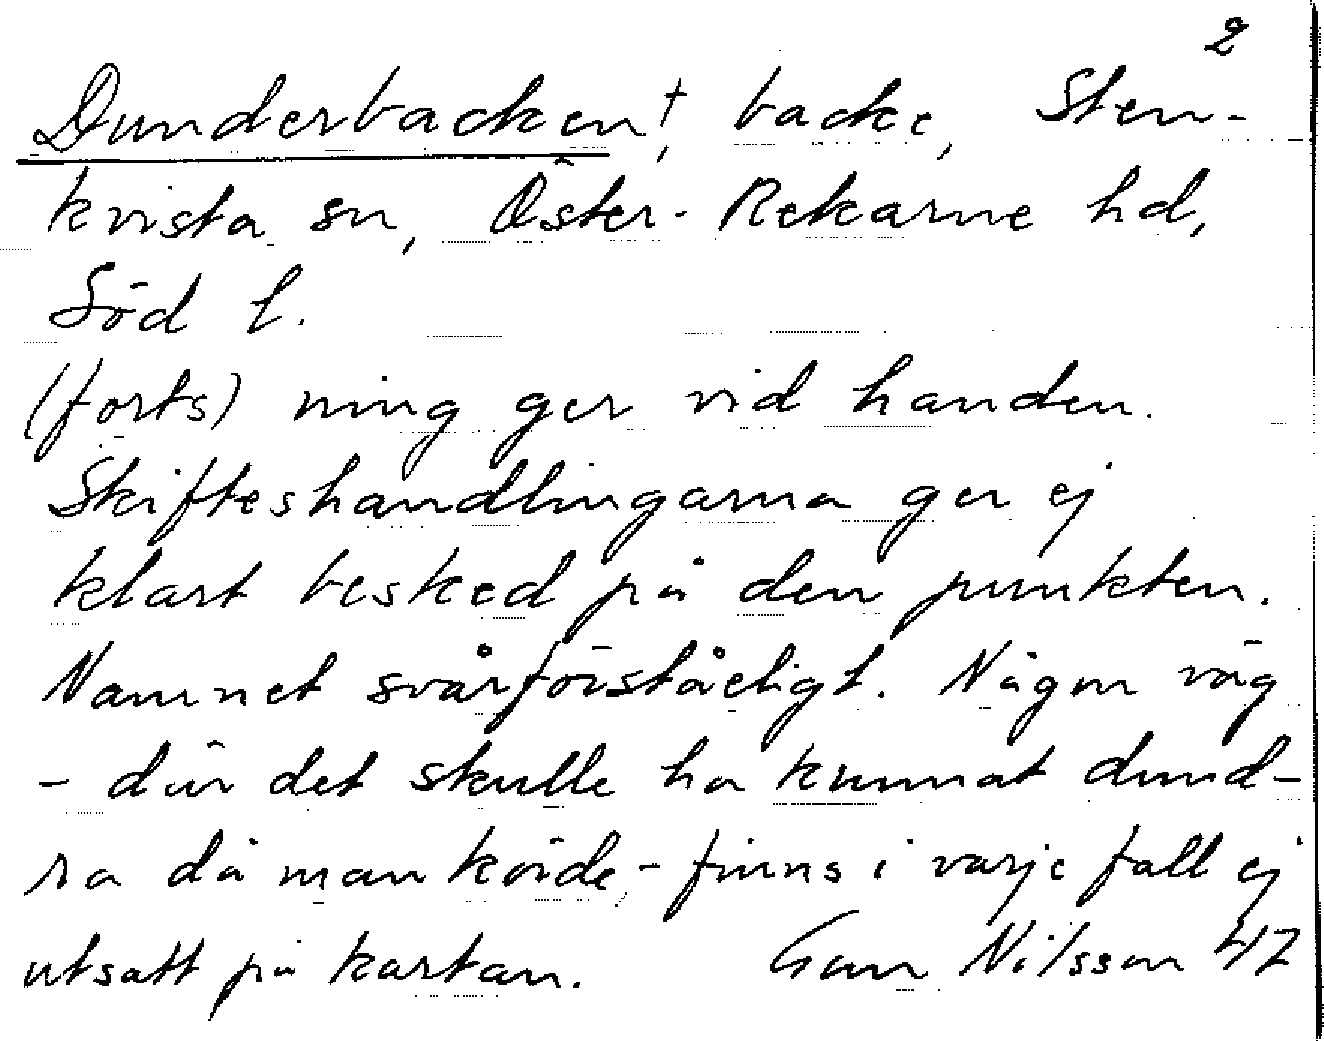 2
Dunderbacken†, backe, Sten-
kvista sn, Öster-Rekarne hd,
Söd l.
(forts) ning ger vid handen.
Skifteshandlingarna ger ej
klart besked på den punkten.
Namnet svårförståeligt. Någon väg
- där det skulle ha kunnat dund-
ra då man körde, - finns i varje fall ej
utsatt på kartan. Gun Nilsson 47